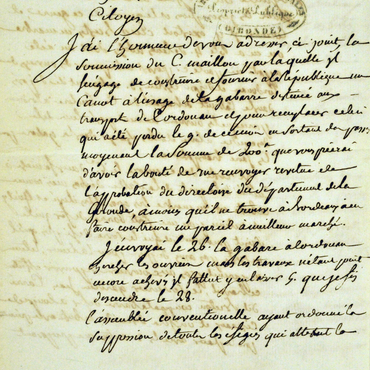 Citoyen
J'ai l'honneur de vous adresser ci joint, la
soumission du C. maillou par laquelle il
s'engage de construire et fournir à la republique un
Canot à l'usage de la gabarre destinée aux
transport de Cordouan et pour remplacer celui
qui a été perdu le 9 de ce mois en sortant de
moyennant la Somme de 200# que vous prierai
d'avoir la bonté de me renvoyer revetue de
l'approbation du directoire du département de la
Gironde, a moins qu'il ne trouve à Bordeaux à en
faire construire un pareil à meilleur marché.
J'envoyai le 26. la gabare à Cordouan
chercher les ouvriers mais les travaux n'étant point
encore achevés il fallut y en laisser 5. que je fis
descendre le 28.
l'assemblée conventionelle ayant ordonné la
suppression de toutes les effigies qui la
GIRONDE